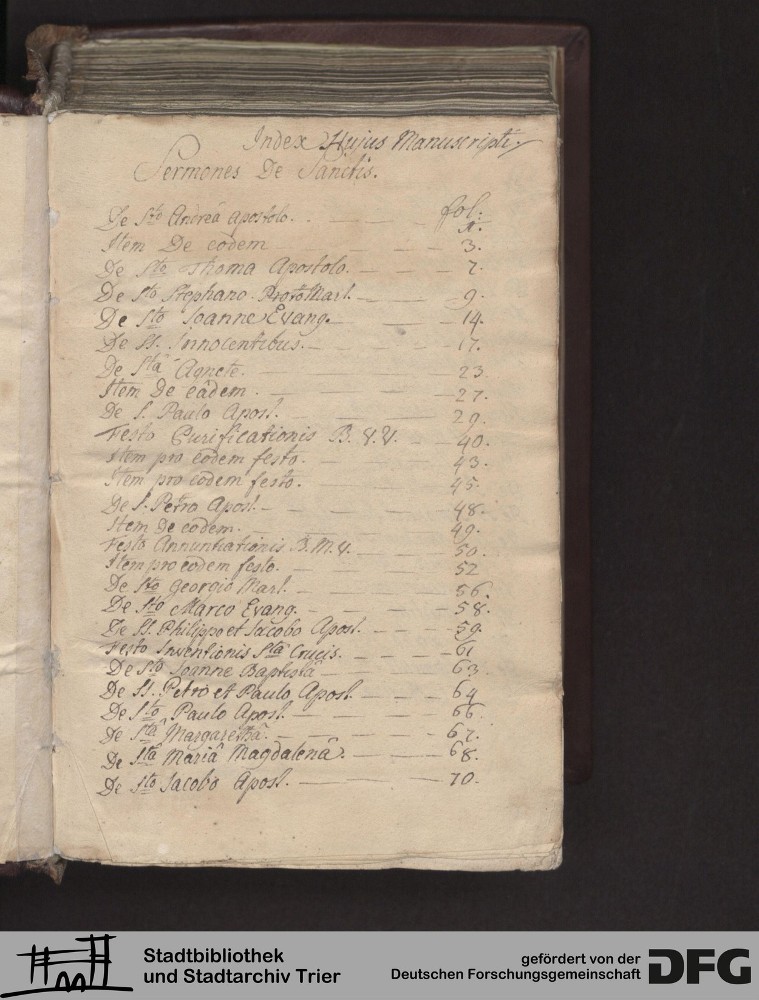 Index Hujus Manuscripti.
Sermones De Sanctis.
fol:
De Sto Andreâ Apostolo. 1.
Item De eodem 3.
De Sto Thoma Apostolo. 7.
De Sto Stephano ProtoMarl. 9.
De Sto Joanne Evang. 14.
De SS. Innocentibus. 17.
De Stâ Agnete. 23.
Item De eâdem. 27.
De S. Paulo Apost. 29.
Festo Purificationis B. V. V. 40.
Item pro eodem festo. 43.
Item pro eodem festo. 45.
De S. Petro Apost. 48.
Item De eodem. 49.
Festo Annuntiationis B. M. V. 50.
Item pro eodem festo. 52
De Sto Georgio Marl. 56.
De Sto Marco Evang. 58.
De SS. Philippo et Jacobo Apost. 59.
Festo Inventionis Sta Crucis. 61
De Sto Joanne Baptistâ 63.
De SS. Petro et Paulo Apost. 64
De Sto Paulo Apost. 66.
De Stâ Margarethâ. 67.
De Stâ Mariâ Magdalenâ. 68.
De Sto Jacobo Apost. 70.
Stadtbibliothek
und Stadtarchiv Trier
gefördert von der
Deutschen Forschungsgemeinschaft
DFG